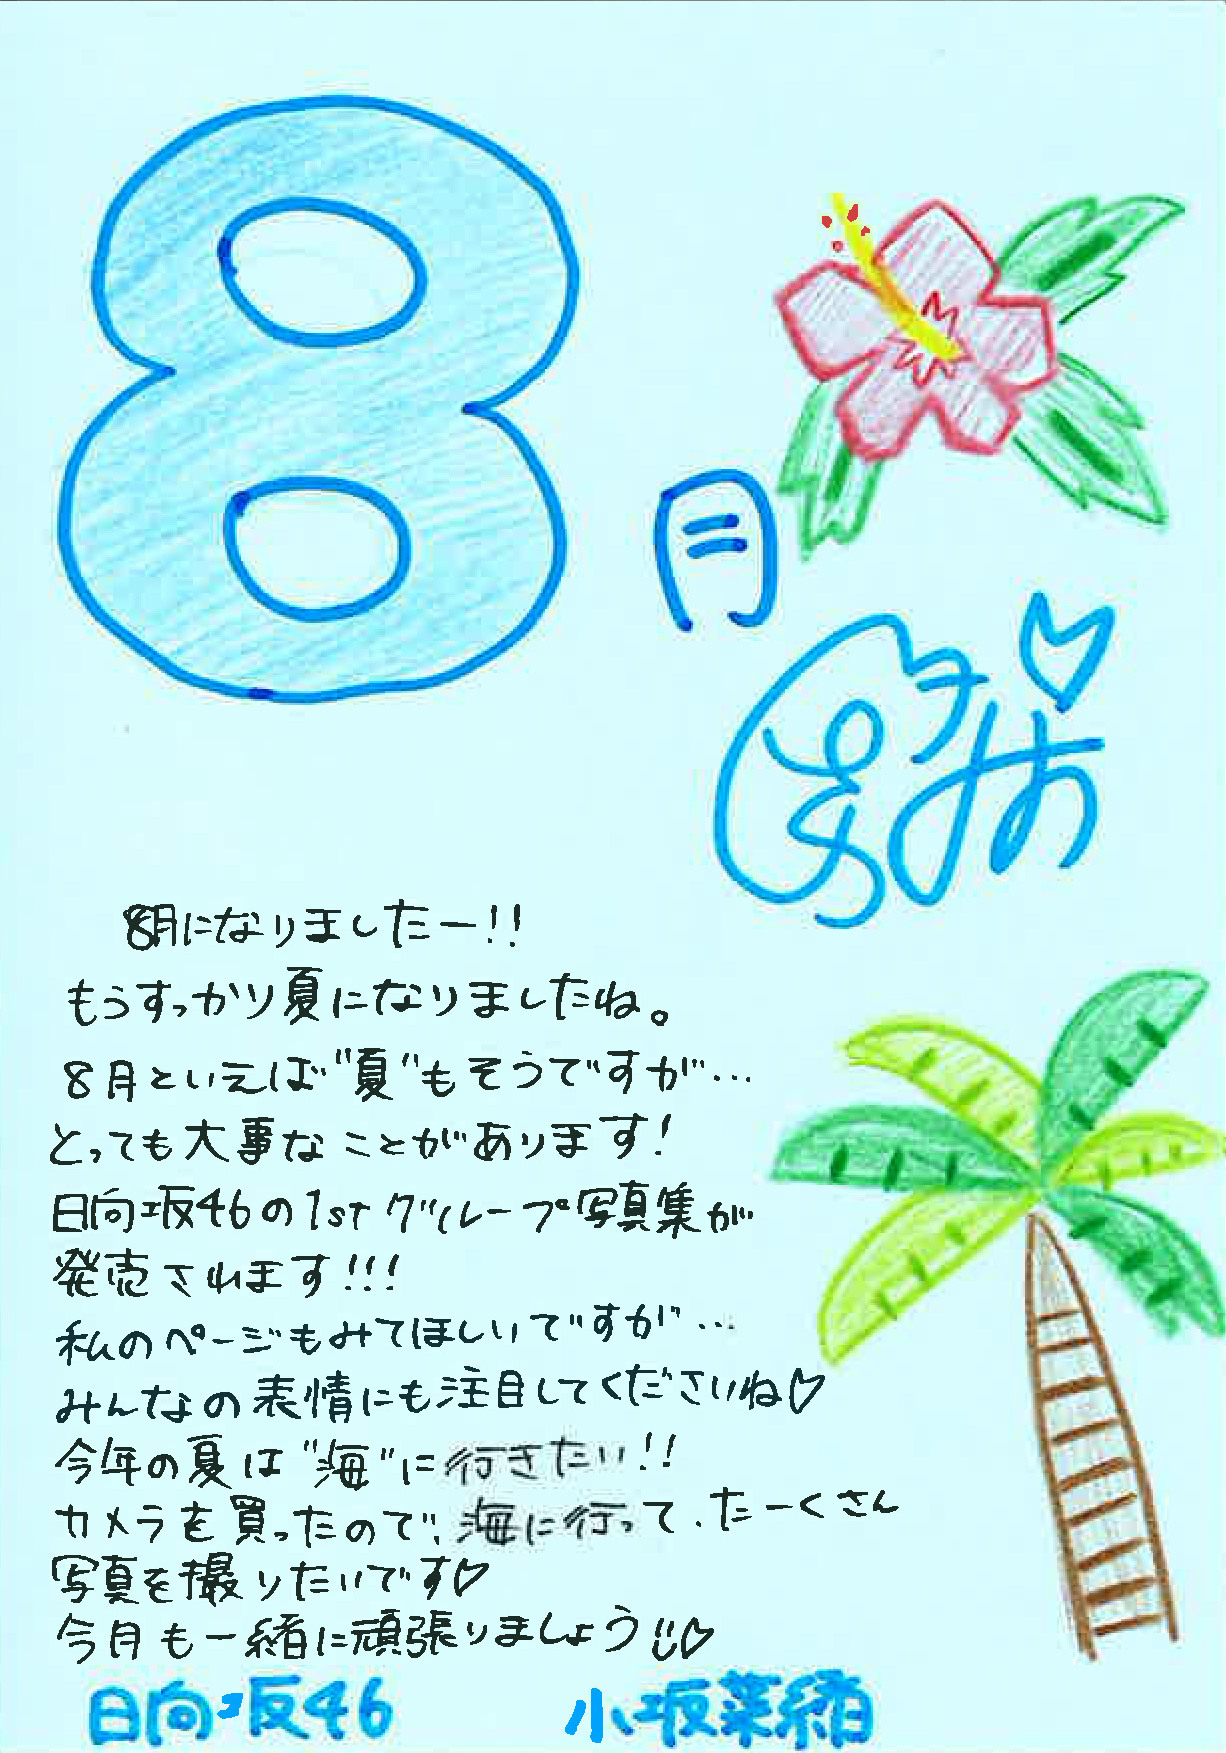 8月
8月になりましたー!!
もうすっかり夏になりましたね。
8月といえば"夏"もそうですが…
とっても大事なことがあります!
日向坂46の1stグループ写真集が
発売されます!!!
私のページもみてほしいですが…
みんなの表情にも注目してくださいね♡
今年の夏は"海"に行きたい!!
カメラを買ったので、海に行って、たーくさん
写真を撮りたいです♡
今月も一緒に頑張りましょう!!♡
日向坂46 小坂菜緒